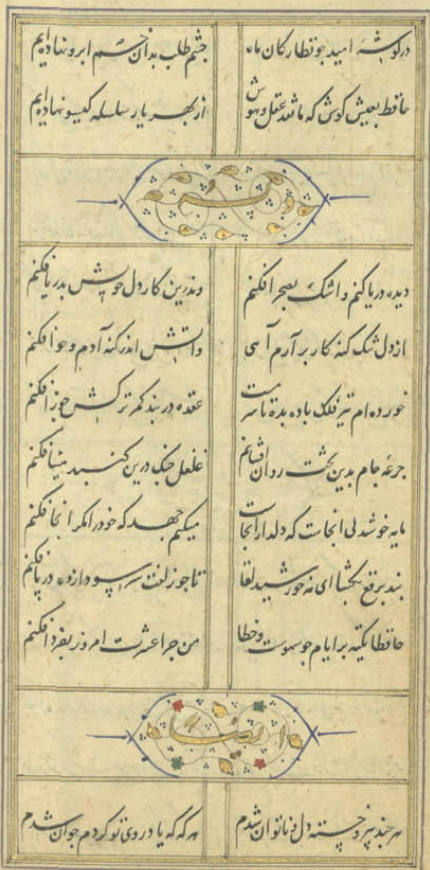 در گوشه امید چو نظارگان ماه چشم طلب بدان خم ابرو نهاده‌ایم
حافظ بعیش کوش که ما نقد عقل و هوش از بهر یار سلسله گیسو نهاده‌ایم
وله
دیده دریا کنم و اشک بصحرا فکنم وندرین کار دل خویش بدریا فکنم
از دل تنک کنه کار بر آرم آهی واتش اندر کنه آدم و حوا فکنم
خورده‌ام تیر فلک باده بده تا سرمست عقده در بند کمر ترکش جوزا فکنم
جرعه جام بدین تخت روان افشانم غلغل چنک درین کنبد مینا فکنم
مایه خوشدلی انجاست که دلدار انجاست میکنم جهد که خود را مکر انجا فکنم
بند برقع بکشا ای مه خورشید لقا تا چو زلفت سر سودازده در پا فکنم
حافظا تکیه بر ایام چو سهوست و خطا من چرا عشرت امروز بفردا فکنم
ایضا
هر چند پیر و خسته دل و ناتوان شدم هر که که یاد روی تو کردم جوان شدم